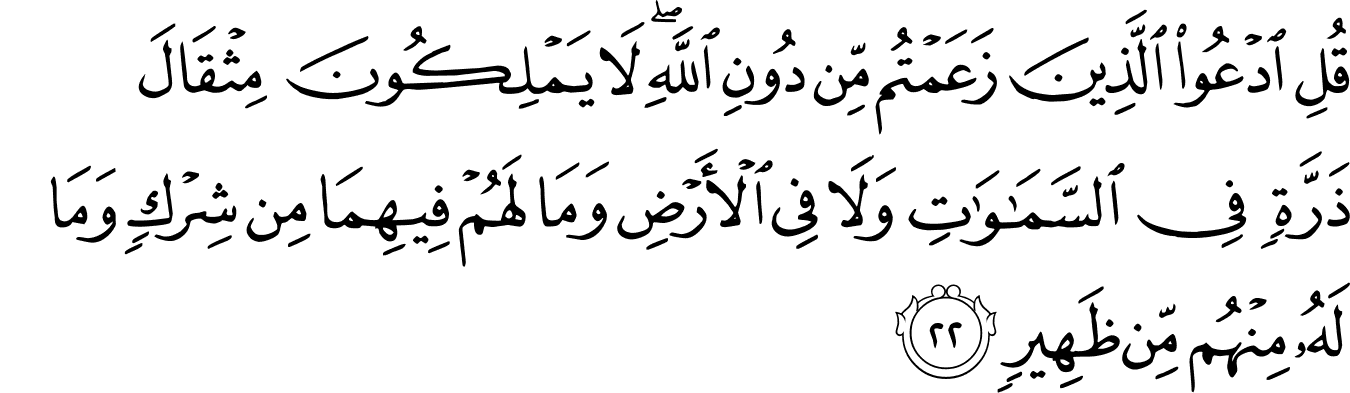 قُلِ ٱدْعُوا۟ ٱلَّذِينَ زَعَمْتُم مِّن دُونِ ٱللَّهِ ۖ لَا يَمْلِكُونَ مِثْقَالَ
ذَرَّةٍ فِى ٱلسَّمَـٰوَٰتِ وَلَا فِى ٱلْأَرْضِ وَمَا لَهُمْ فِيهِمَا مِن شِرْكٍ وَمَا
لَهُۥ مِنْهُم مِّن ظَهِيرٍ ٢٢